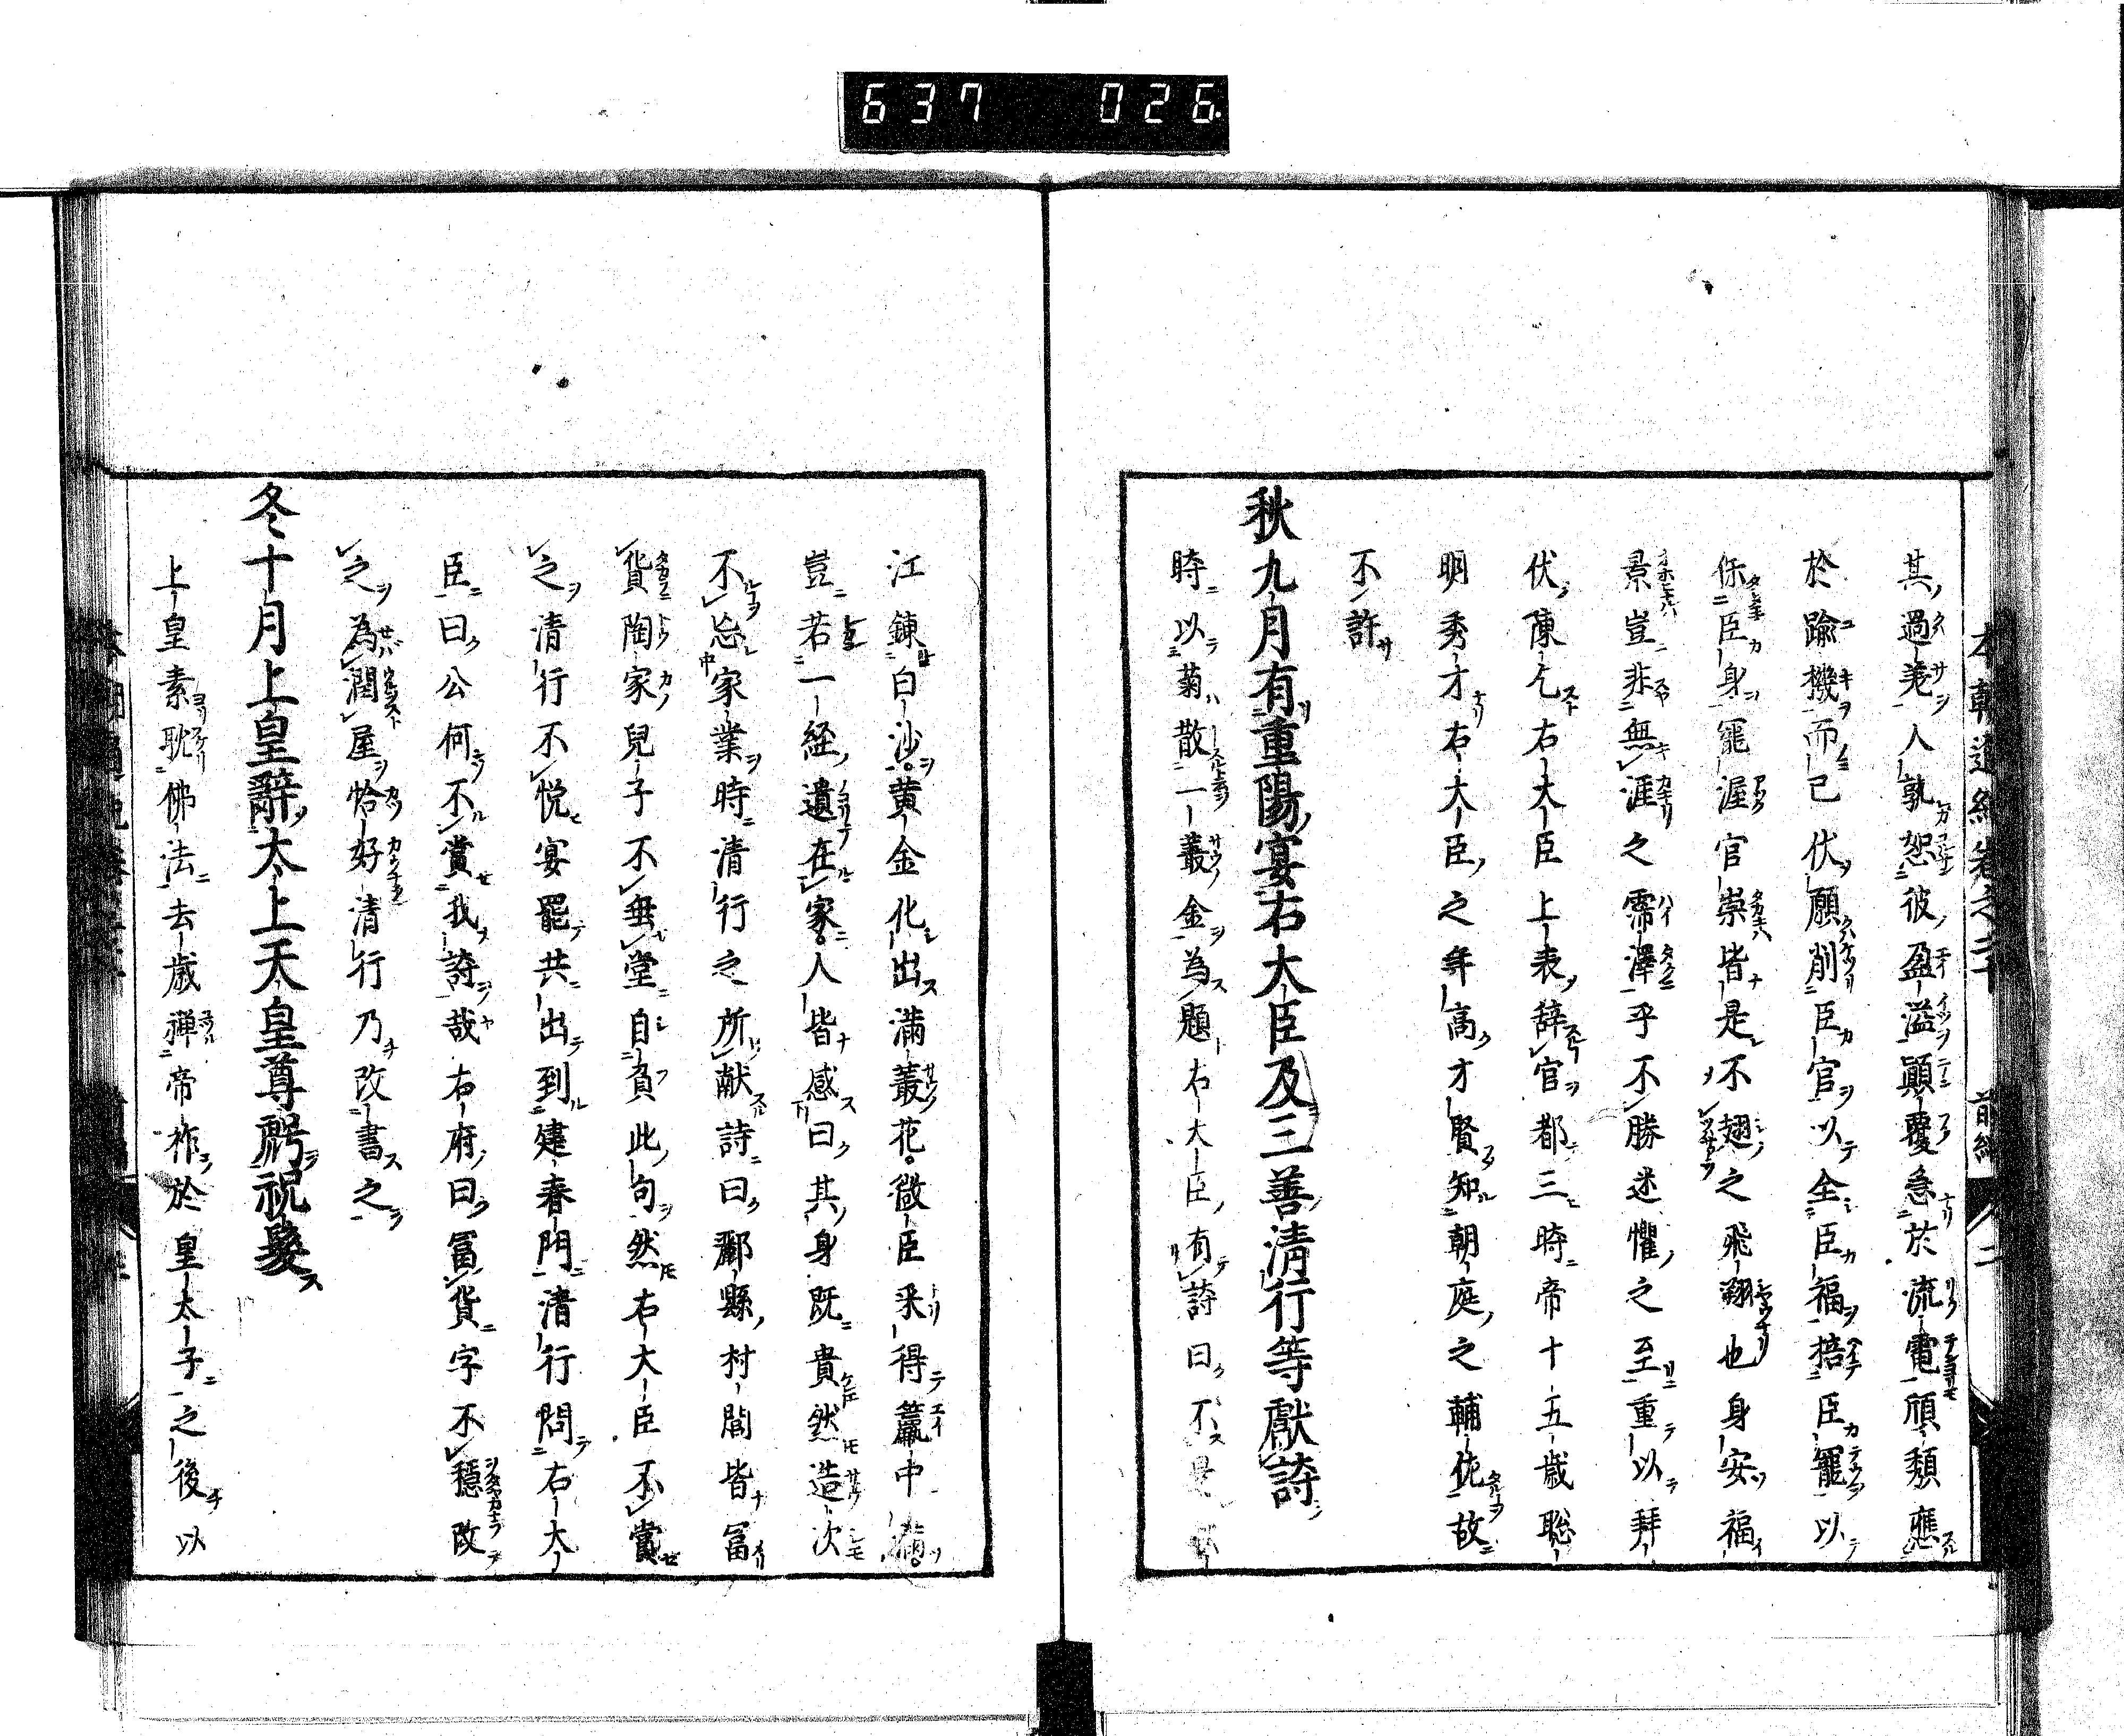 637 026
本朝通紀卷之二十 前編 二
其過差人孰恕彼盈溢顚覆急於流電頎頽應
於踰機而已伏願削臣官以全臣福揞臣寵以
保臣身寵渥官崇皆是不翅之飛翔也身安福
景豈非無涯之霈澤乎不勝迷懼之至重以拜
伏陳乞右大臣上表辞官都三時帝十五歳聡
明秀才右大臣之年高才賢知朝庭之輔佐故
不許
秋九月有重陽宴右大臣及三善清行等獻詩
時以菊散一叢金為題右大臣有詩曰不是
江錬白沙黄金化出滿叢花微臣采得籯中滿
豈若一経遺在家人皆感曰其身既貴然造次
不忘家業時清行之所献詩曰酈縣村閭皆冨
貨陶家兒子不垂堂自負此句然右大臣不賞
之清行不悦宴罷共出到建春門清行問右大
臣曰公何不賞我詩哉右府曰冨貨字不穏改
之為潤屋恰好清行乃改書之
冬十月上皇辭太上天皇尊號祝髮
上皇素耽佛法去歳禪帝祚於皇太子之後以